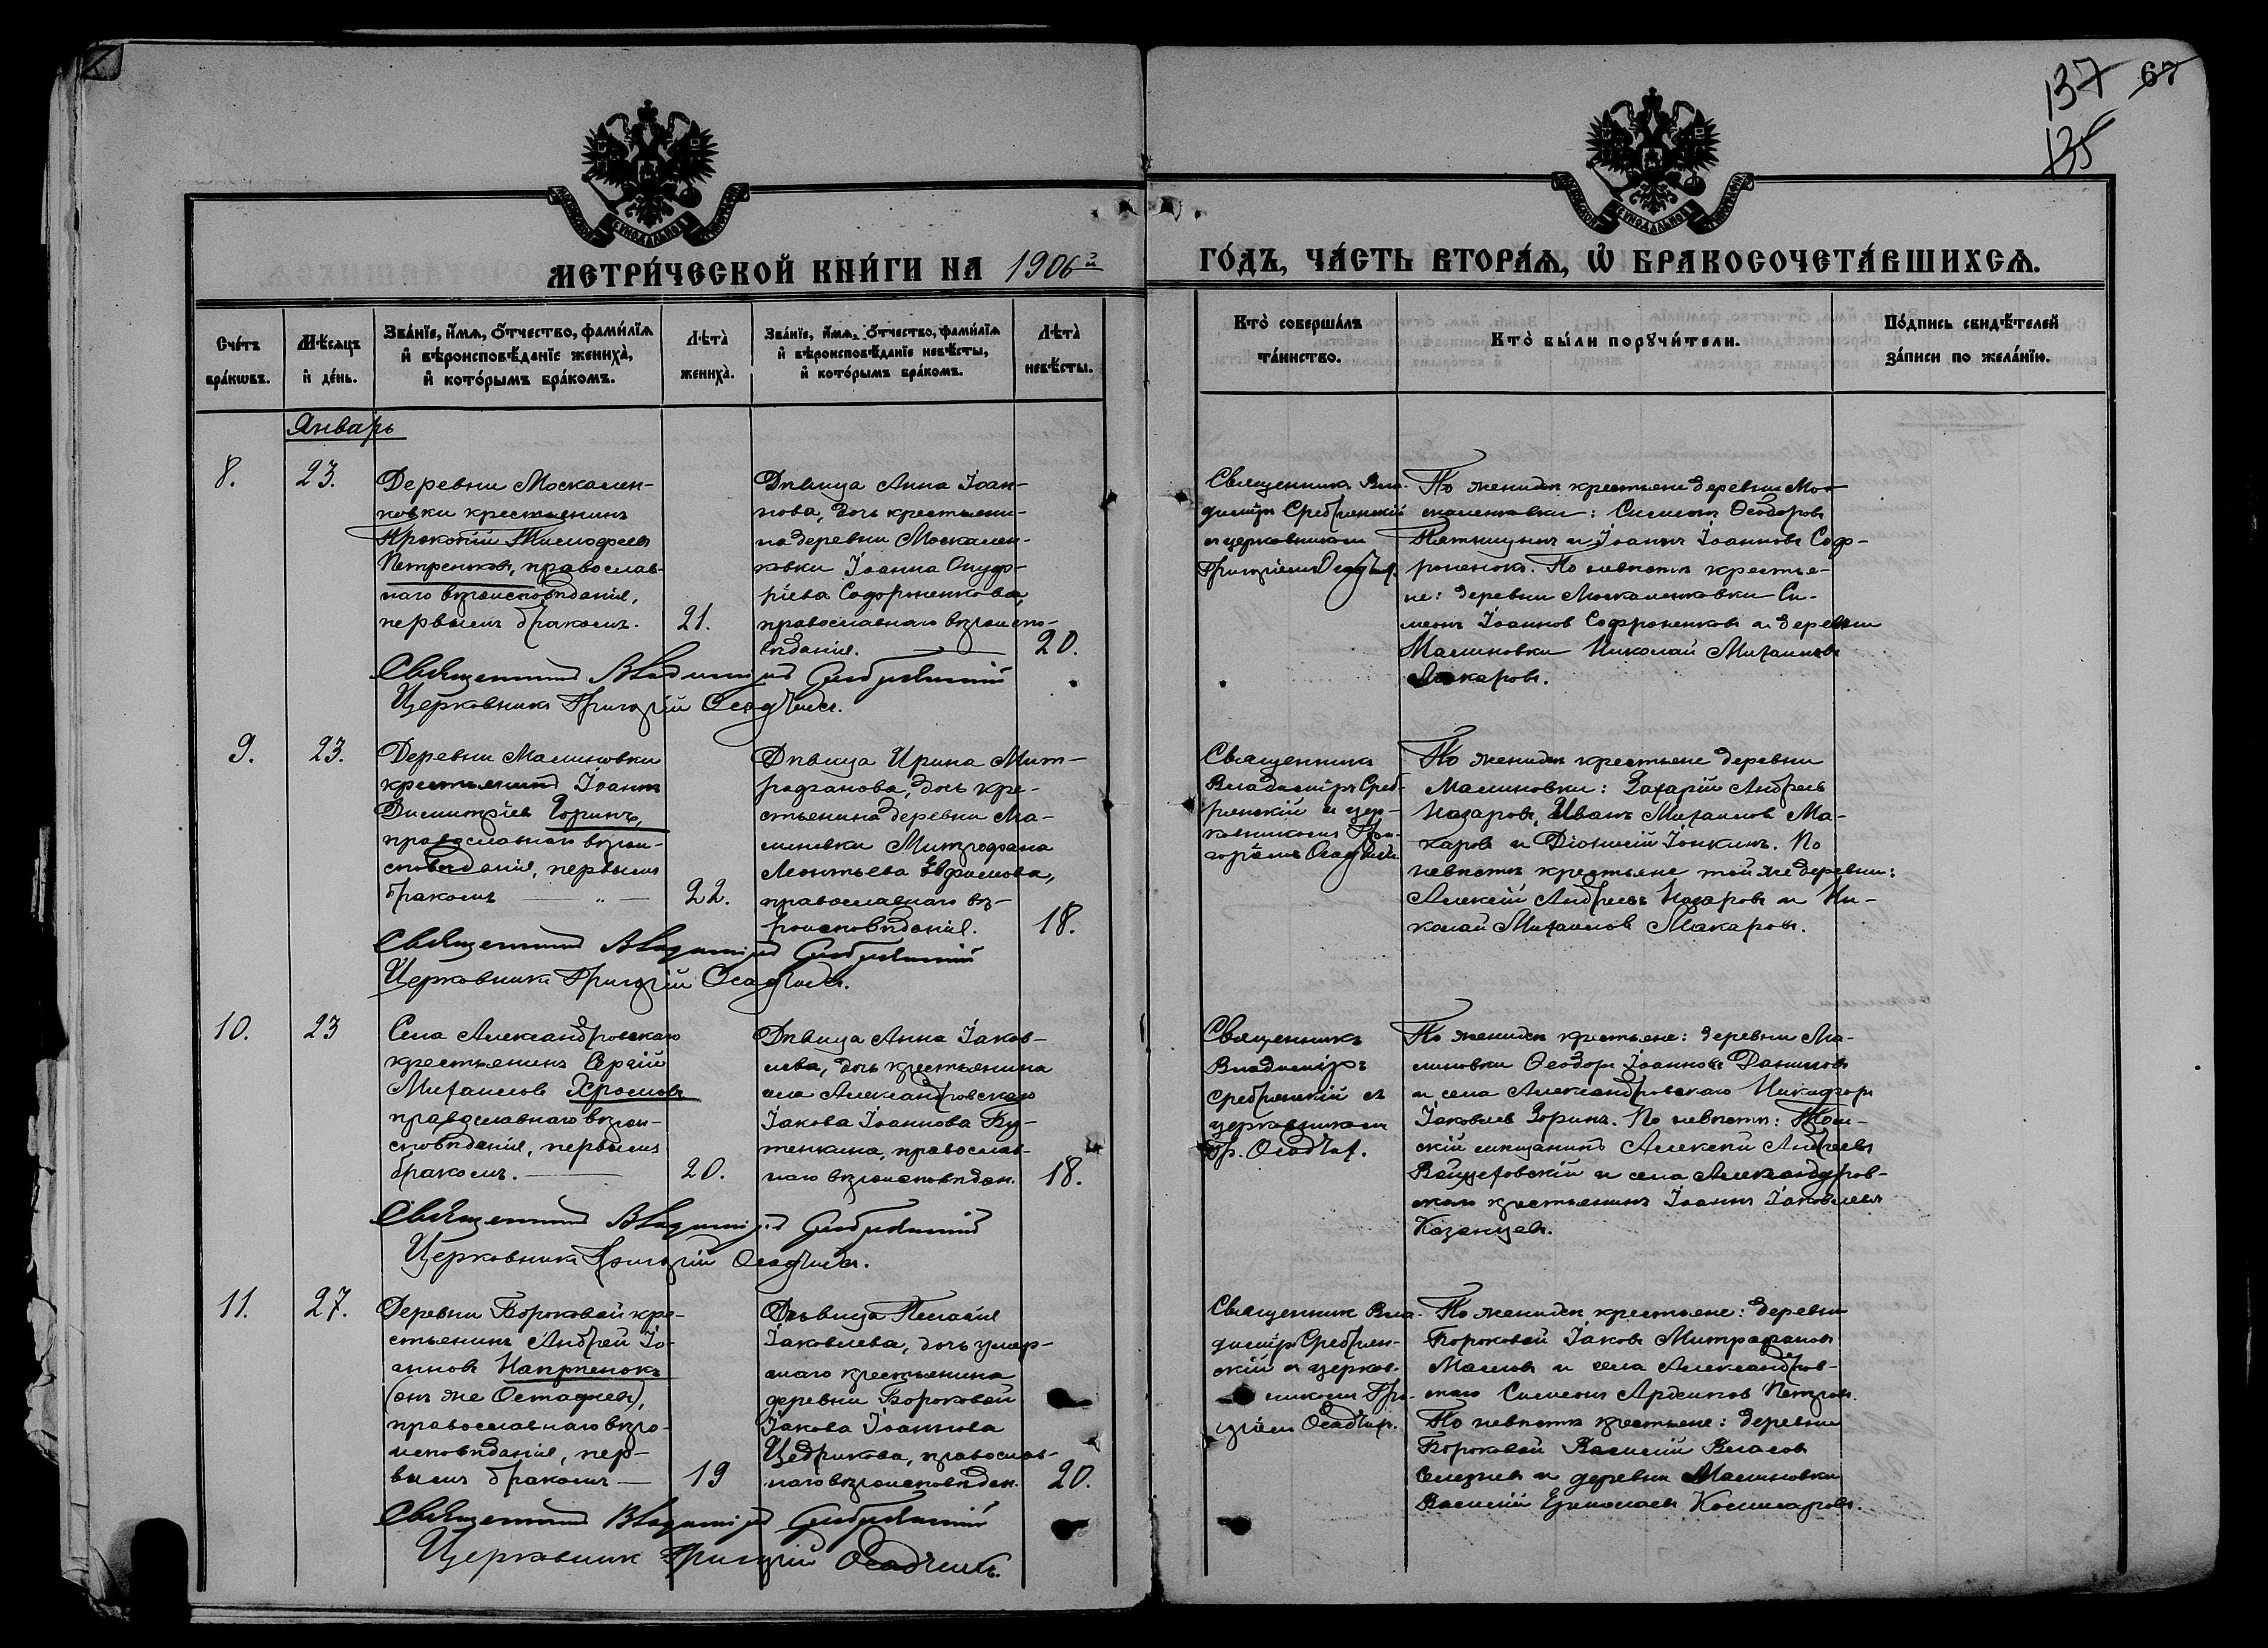 137 67
135
МЕТРИ́ЧЕСКОЙ КНИ́ГИ НА 1906й
ГО́ДЪ, ЧА́СТЬ ВТОРА́Ѧ, Ѽ БРАКОСОЧЕТА́ВШИХСѦ.
Сче́тъ бра́кѡвъ.
Мѣ́сѧцъ и҆ де́нь.
Зва́нїе, и҆́мѧ, ѻ҆́тчество, фами́лїѧ
и҆ вѣроисповѣ́данїе жениха̀,
и҆ кото́рымъ бра́комъ.
Лѣта̀ жениха̀.
Зва́нїе, и҆́мѧ, ѻ҆́тчество, фами́лїѧ
и҆ вѣроисповѣ́данїе невѣ́сты,
и҆ кото́рымъ бра́комъ.
Лѣта̀ невѣ́сты.
Кто̀ соверша́лъ
та́инство.
Кто̀ бы́ли порꙋчи́тели.
По́дпись свидѣ́телей
за́писи по жела́нїю.
Январь
8.
23.
Деревни Москален-
ковки крестьянинъ
Прокопій Тимофеевъ
Петренковъ, православ-
наго вѣроисповѣданія,
первымъ бракомъ.
21.
Дѣвица Анна Іоан-
нова, дочь крестьяни-
на деревни Москален-
ковки Іоанна Онуф-
ріева Софроненкова,
православнаго вѣроиспо-
вѣданія.
20.
Священникъ Вла-
диміръ Сребрянскій
съ церковникомъ
Григоріемъ Осадчим.
По женихѣ крестьяне деревни Мо-
скаленковки: Симеонъ Ѳеодоровъ
Пятницынъ и Іоаннъ Іоанновъ Соф-
роненокъ. По невѣстѣ крестья-
не: деревни Москаленковки Си-
меонъ Іоанновъ Софроненковъ и деревни
Малиновки Николай Михаиловъ
Макаровъ.
Священникъ Владиміръ Сребрянскій
Церковникъ Григорій Осадчій.
9.
23.
Деревни Малиновки
крестьянинъ Іоаннъ
Димитріевъ Горинъ,
православнаго вѣрои-
сповѣданія, первымъ
бракомъ
22.
Дѣвица Ирина Мит-
рофанова, дочь кре-
стьянина деревни Ма-
линовки Митрофана
Леонтьева Ефимова,
православнаго вѣ-
роисповѣданія.
18.
Священникъ
Владиміръ Среб-
рянскій и цер-
ковникомъ Гри-
горіемъ Осадчим
По женихѣ крестьяне деревни
Малиновки: Захарій Андреевъ
Назаровъ, Иванъ Михаиловъ Ма-
каровъ и Діонисій Іонкинъ. По
невѣстѣ крестьяне той же деревни:
Алексій Андреевъ Назаровъ и Ни-
колай Михаиловъ Макаровъ.
Священникъ Владиміръ Сребрянскій
Церковникъ Григорій Осадчій.
10.
23
Села Александровскаго
крестьянинъ Сергій
Михаиловъ Хромовъ
православнаго вѣрои-
сповѣданія, первымъ
бракомъ.
20.
Дѣвица Анна Іаков-
лева, дочь крестьянина
села Александровскаго
Іакова Іоаннова Бу-
тенкина, православ-
наго вѣроисповѣдан.
18.
Священникъ
Владиміръ
Сребрянскій съ
церковникомъ
Гр. Осадчим.
По женихѣ крестьяне: деревни Ма-
линовки Ѳеодоръ Іоанновъ Даниловъ
и села Александровскаго Никифоръ
Іаковлев Зоринъ. По невѣстѣ: Том-
скій мѣщанинъ Алексѣй Андреевъ
Войцеховскій и села Александров-
скаго крестьянинъ Іоаннъ Іаковлевъ
Казанцевъ.
Священникъ Владиміръ Сребрянскій
Церковникъ Григорій Осадчій.
11.
27.
Деревни Бороковой кре-
стьянинъ Андрей Іо-
анновъ Напрѣенокъ
(онъ же Остафіевъ),
православнаго вѣро-
исповѣданія, пер-
вымъ бракомъ
19
Дѣвица Пелагія
Іаковлева, дочь умер-
шаго крестьянина
деревни Бороковой
Іакова Іоаннова
Цедрикова, православ-
наго вѣроисповѣдан.
20.
Священникъ Вла-
диміръ Сребрян-
скій съ церков-
никомъ Гри-
горіем Осадчим.
По женихѣ крестьяне: деревни
Бороковой Іаковъ Митрофановъ
Масловъ и села Александров-
скаго Симеонъ Петров.
По невѣстѣ крестьяне: деревни
Бороковой Василій Власовъ
и деревни Малиновки
Василій Комиссаровъ.
Священникъ Владиміръ Сребрянскій
Церковник Григорій Осадчій.